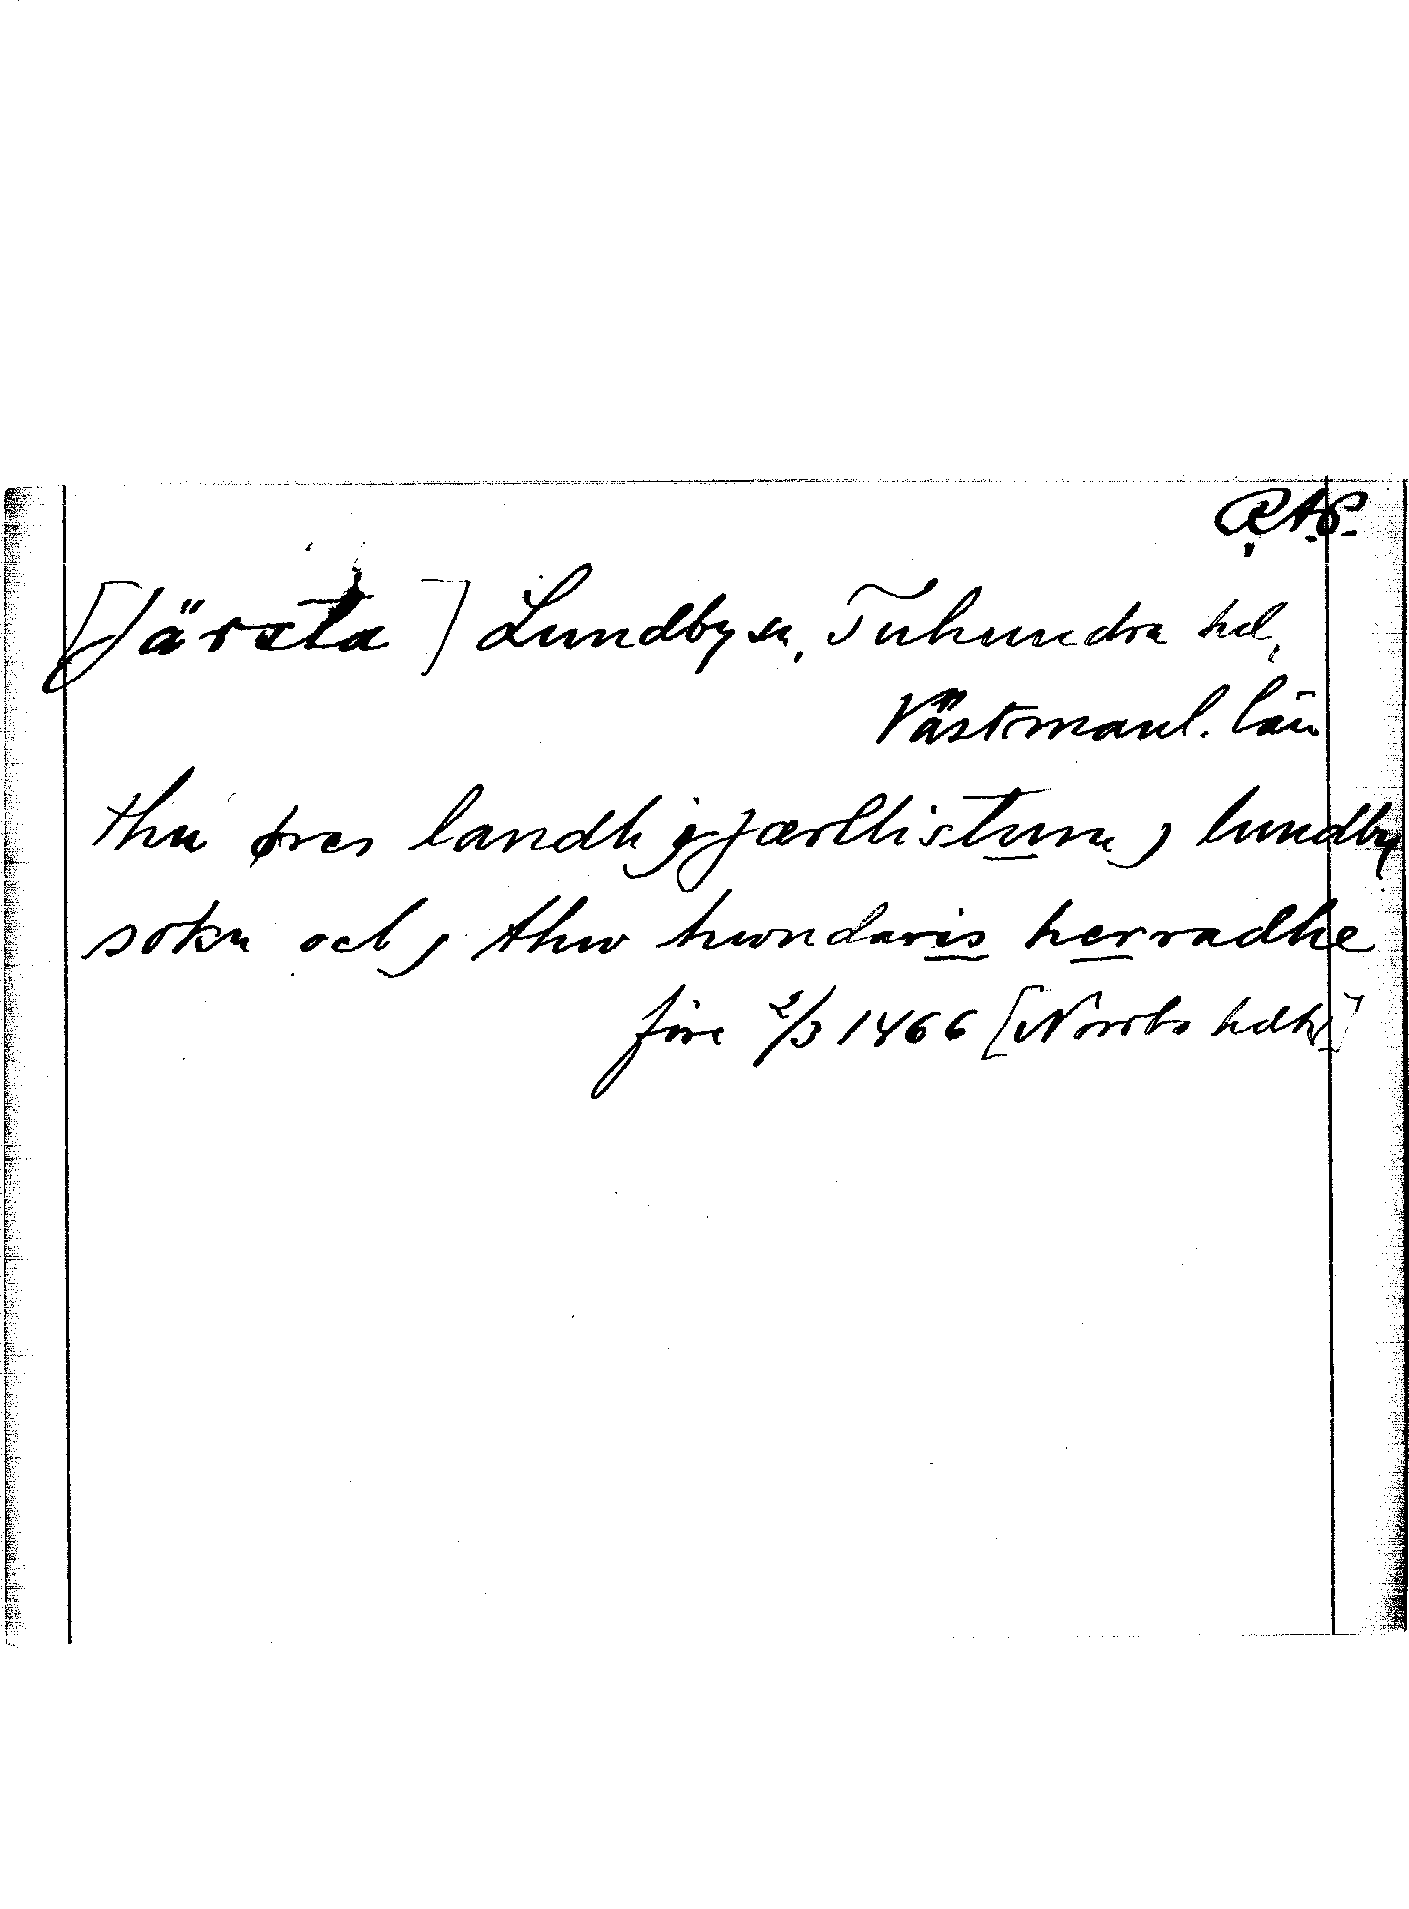 R.A.P.
[Järsta] Lundby sn, Tuhundra hd,
Västmanl. län
thu øres landh j jærllistum j lundby
sokn och j thw hwndaris herradhe
före 2/3 1466 [Norrbo hdhr]